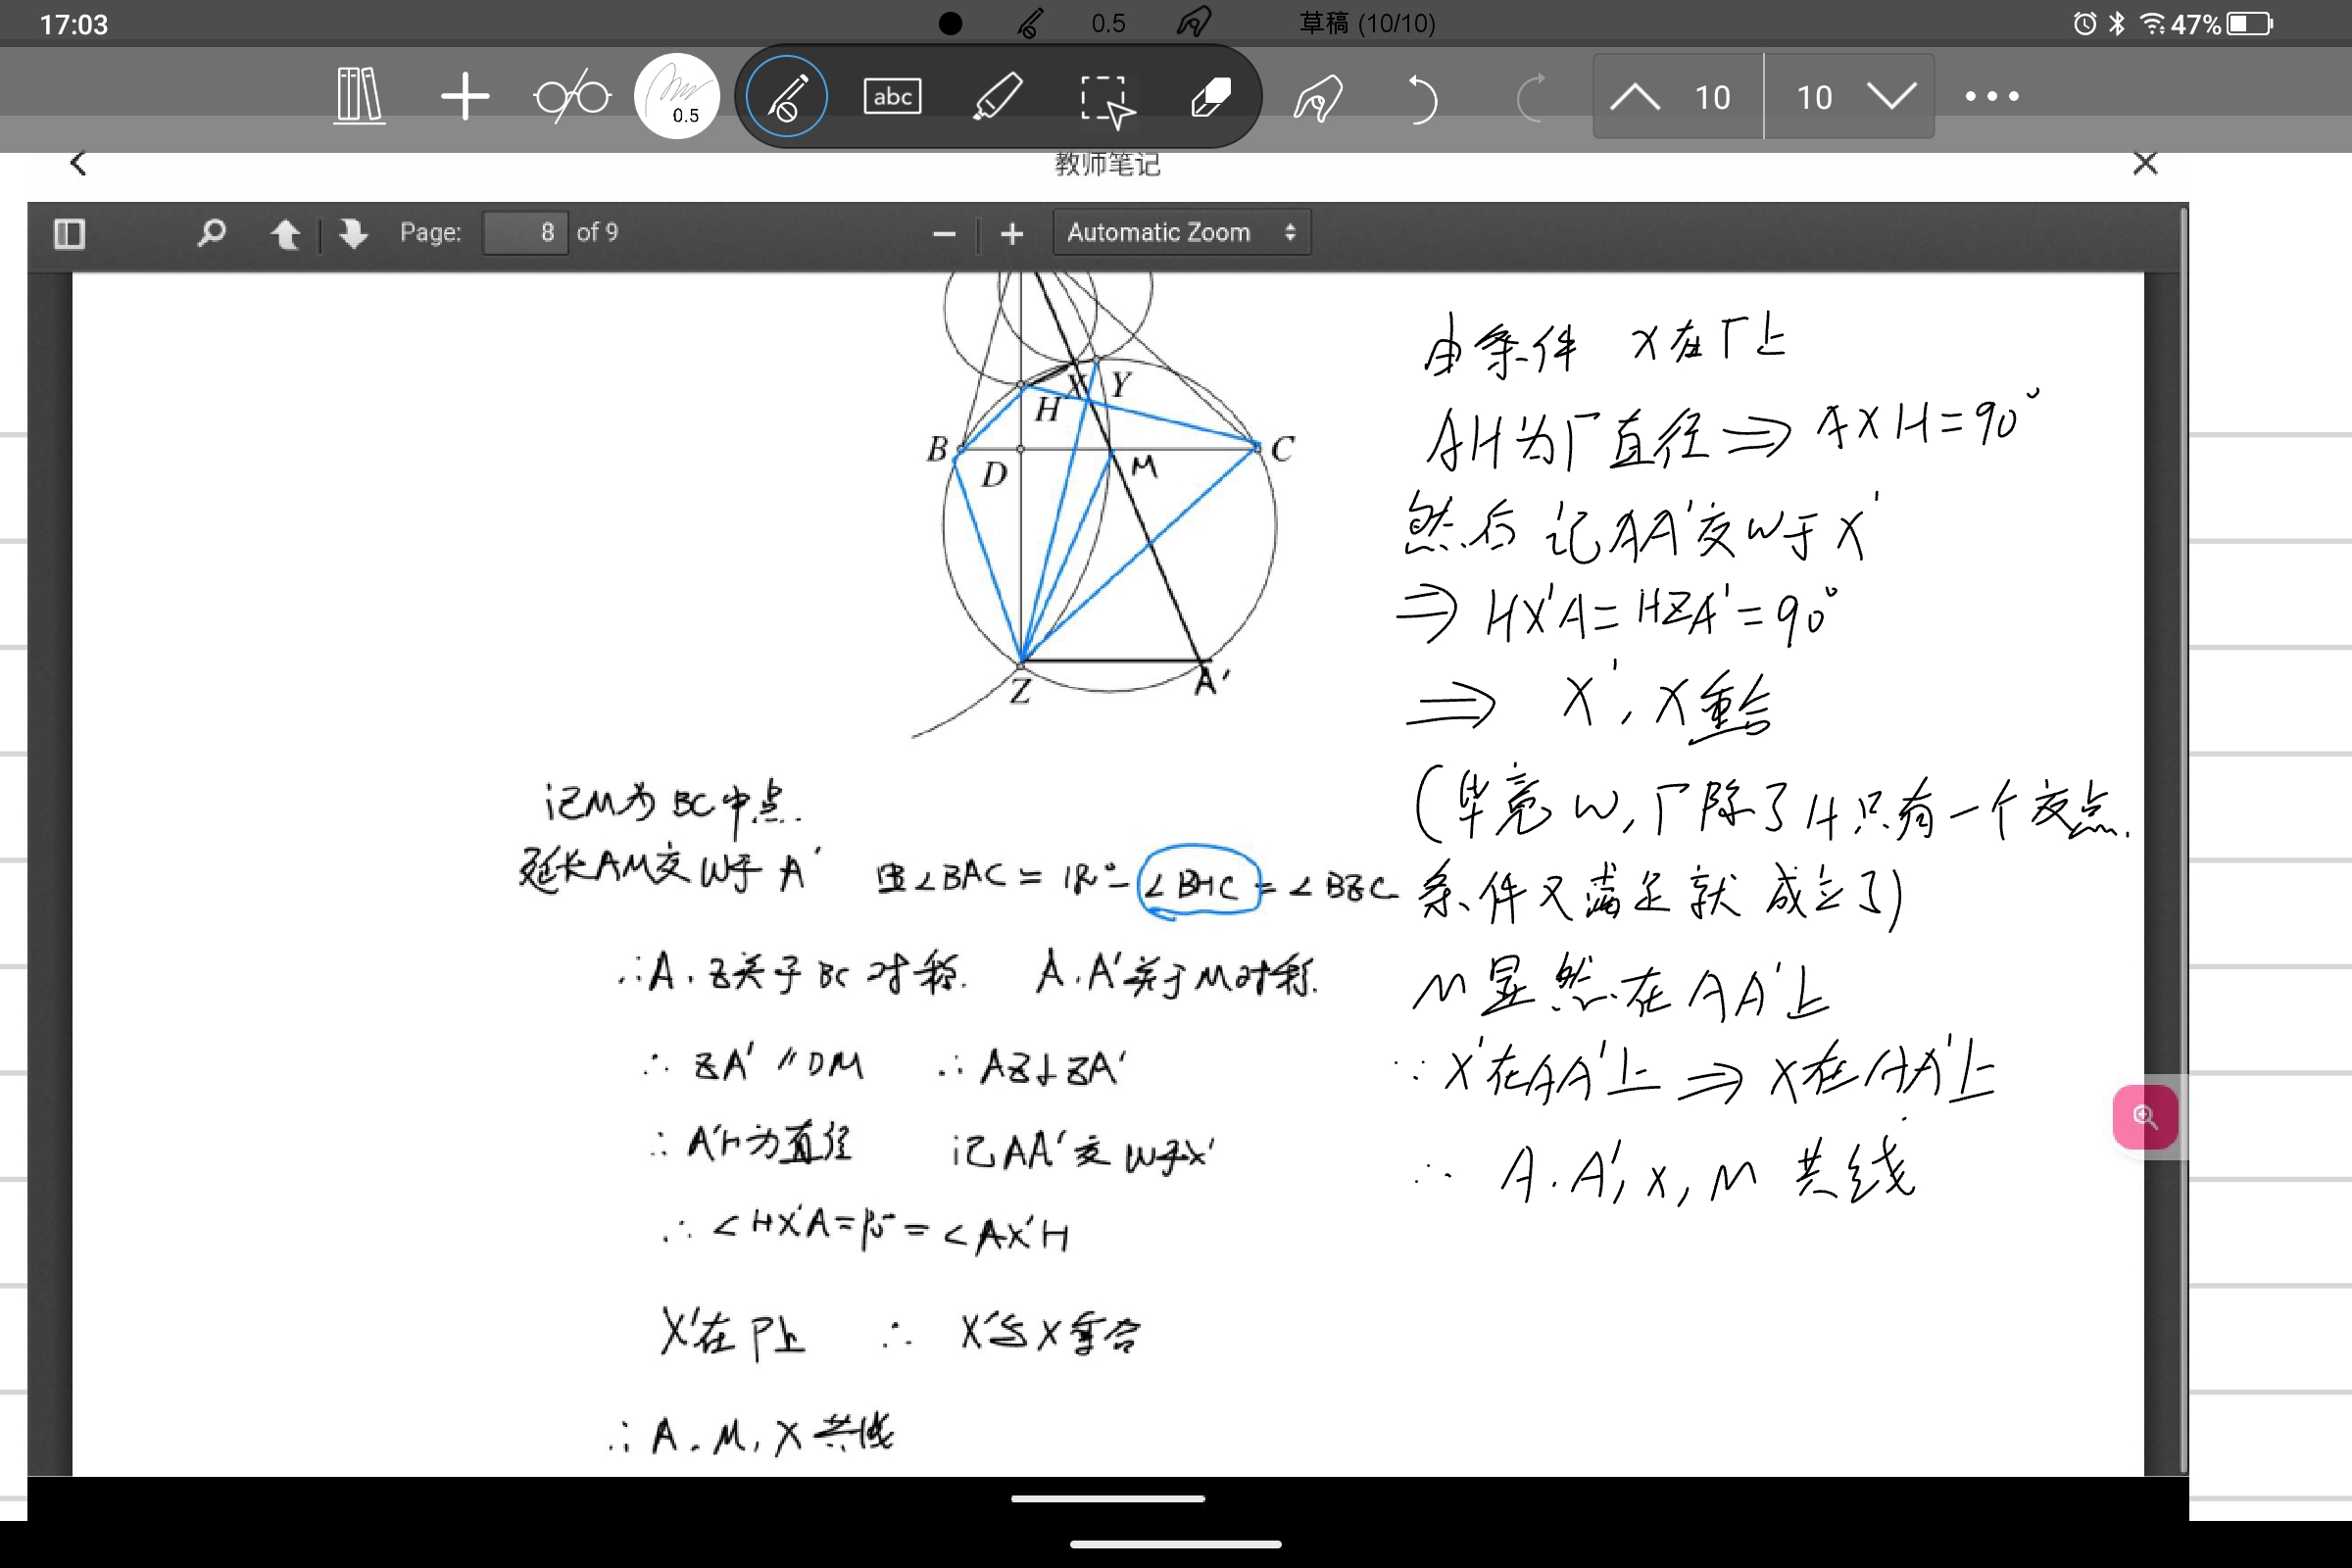 17:03
0.5
草稿 (10/10)
47%
0.5
abc
10
10
教师笔记
Page:
8
of 9
Automatic Zoom
H
X
Y
B
D
M
C
Z
A'
记M为 BC中点.
延长AM交 W于 A'
∠BAC = 180°- ∠BHC = ∠BZC
∴A. Z关于 BC 对称. A. A'关于 M对称.
∴ ZA' // DM ∴ AZ⊥ZA'
∴ A'H为直径 记AA'交 W于X'
∴ ∠HX'A = 90° = ∠AX'H
X'在 Γ上 ∴ X'与 X重合
∴ A. M. X 共线
由条件 X在Γ上
AH为Γ直径 ⇒ AXH=90°
然后 记AA'交W于X'
⇒ HX'A = HZA' = 90°
⇒ X', X重合
(毕竟 W, Γ除了 H 只有一个交点.
条件又满足就 成立了)
M显然在 AA'上
∵ X'在AA'上 ⇒ X在AA'上
∴ A. A', X, M 共线